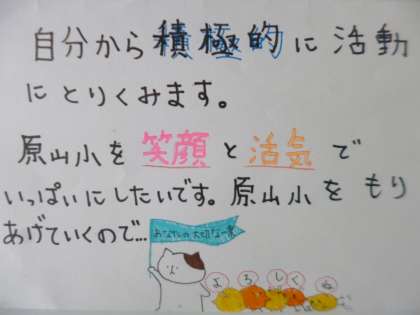 自分から積極的に活動
にとりくみます。
原山小を笑顔と活気で
いっぱいにしたいです。原山小をもり
あげていくので...
あなたの大切な一票
よろしくね